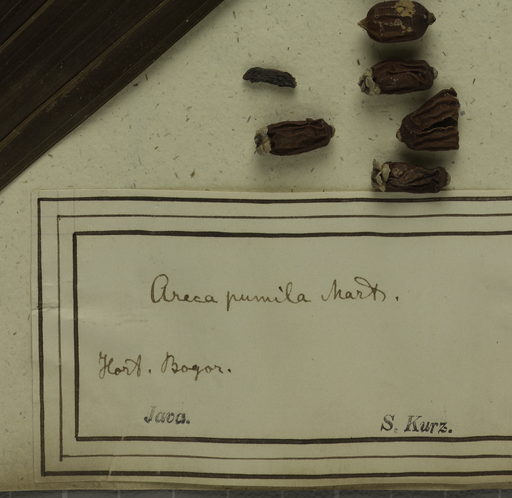 Areca pumila Mart.
Hort. Bogor.
Java. S. Kurz.